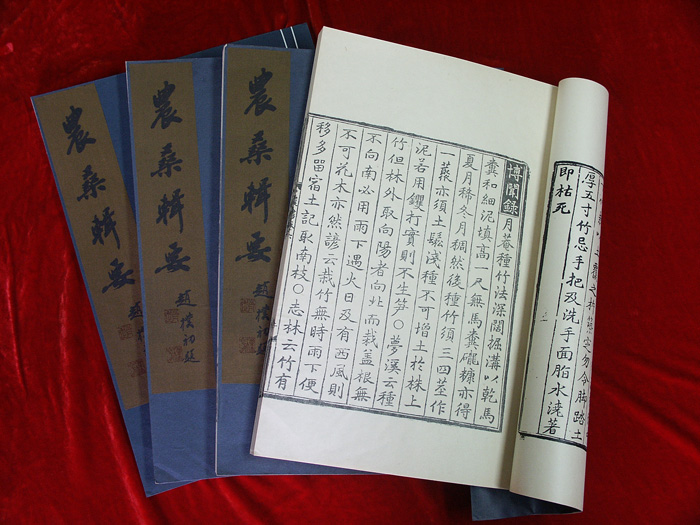 農桑輯要
趙
農桑輯要
趙樸
農桑輯要
趙樸初題
定勿令脚踏土
厚五寸竹忌手把及洗手面脂水澆著
即枯死
博聞錄 月菴種竹法深闊掘溝以乾馬
糞和細泥填高一尺無馬糞礱糠亦得
夏月稀冬月稠然後種竹須三四莖作
一藂亦須土鬆淺種不可增土於株上
泥若用钁打實則不生笋○夢溪云種
竹但林外取向陽者向北而栽盖根無
不向南必用雨下遇火日及有西風則
不可花木亦然諺云栽竹無時雨下便
移多留宿土記取南枝○志林云竹有